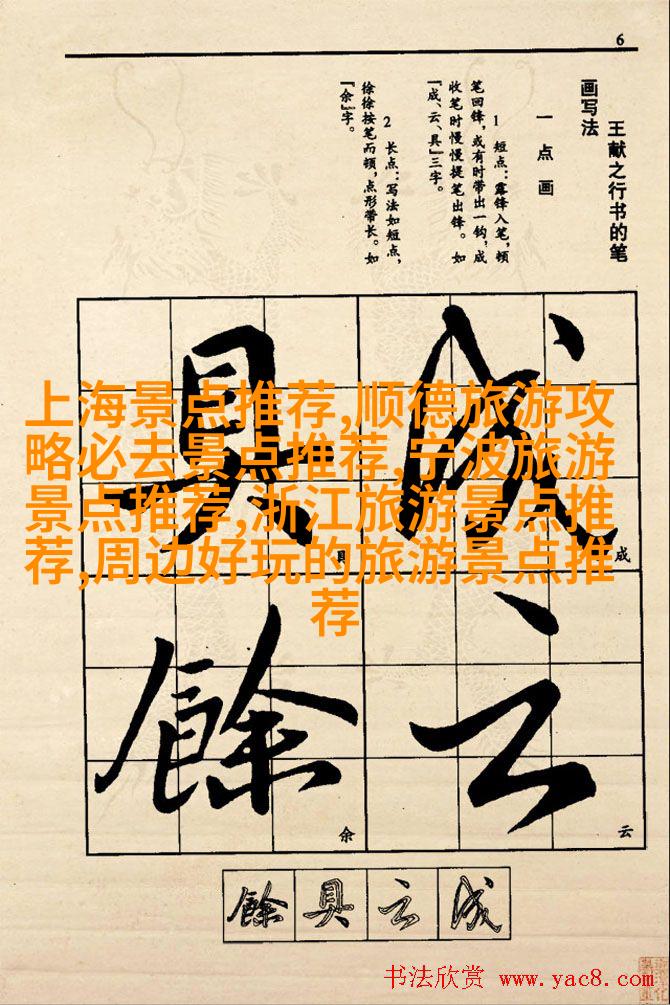 6
王献之行书的笔
画写法
一 点 画
1 短点：露锋入笔，顿
笔回锋，或有时带出一钩，成
收笔时慢慢提笔出锋。如
“成、云、具”三字。
2 长点：写法如短点，
徐徐按笔而顿，点形带长。如
“余”字。
成
具
上海景点推荐,顺德旅游攻
略必去景点推荐,宁波旅游
景点推荐,浙江旅游景点推
荐,周边好玩的旅游景点推
荐
成
具
云
餘
云
余
餘 具 云 成
书法欣赏 www.yac8.com